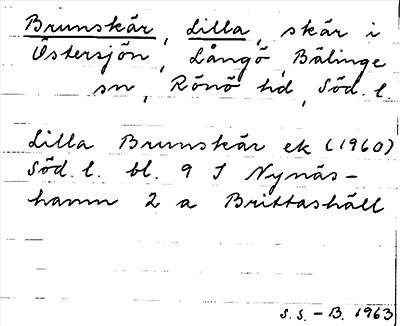 Brunskär, Lilla, skär i
Östersjön, Långö, Bälinge
sn, Rönö hd, Söd. l.
Lilla Brunskär ek (1960)
Söd. l. bl. 9 I Nynäs-
hamn 2 a Brittashäll
S.S. - B. 1963